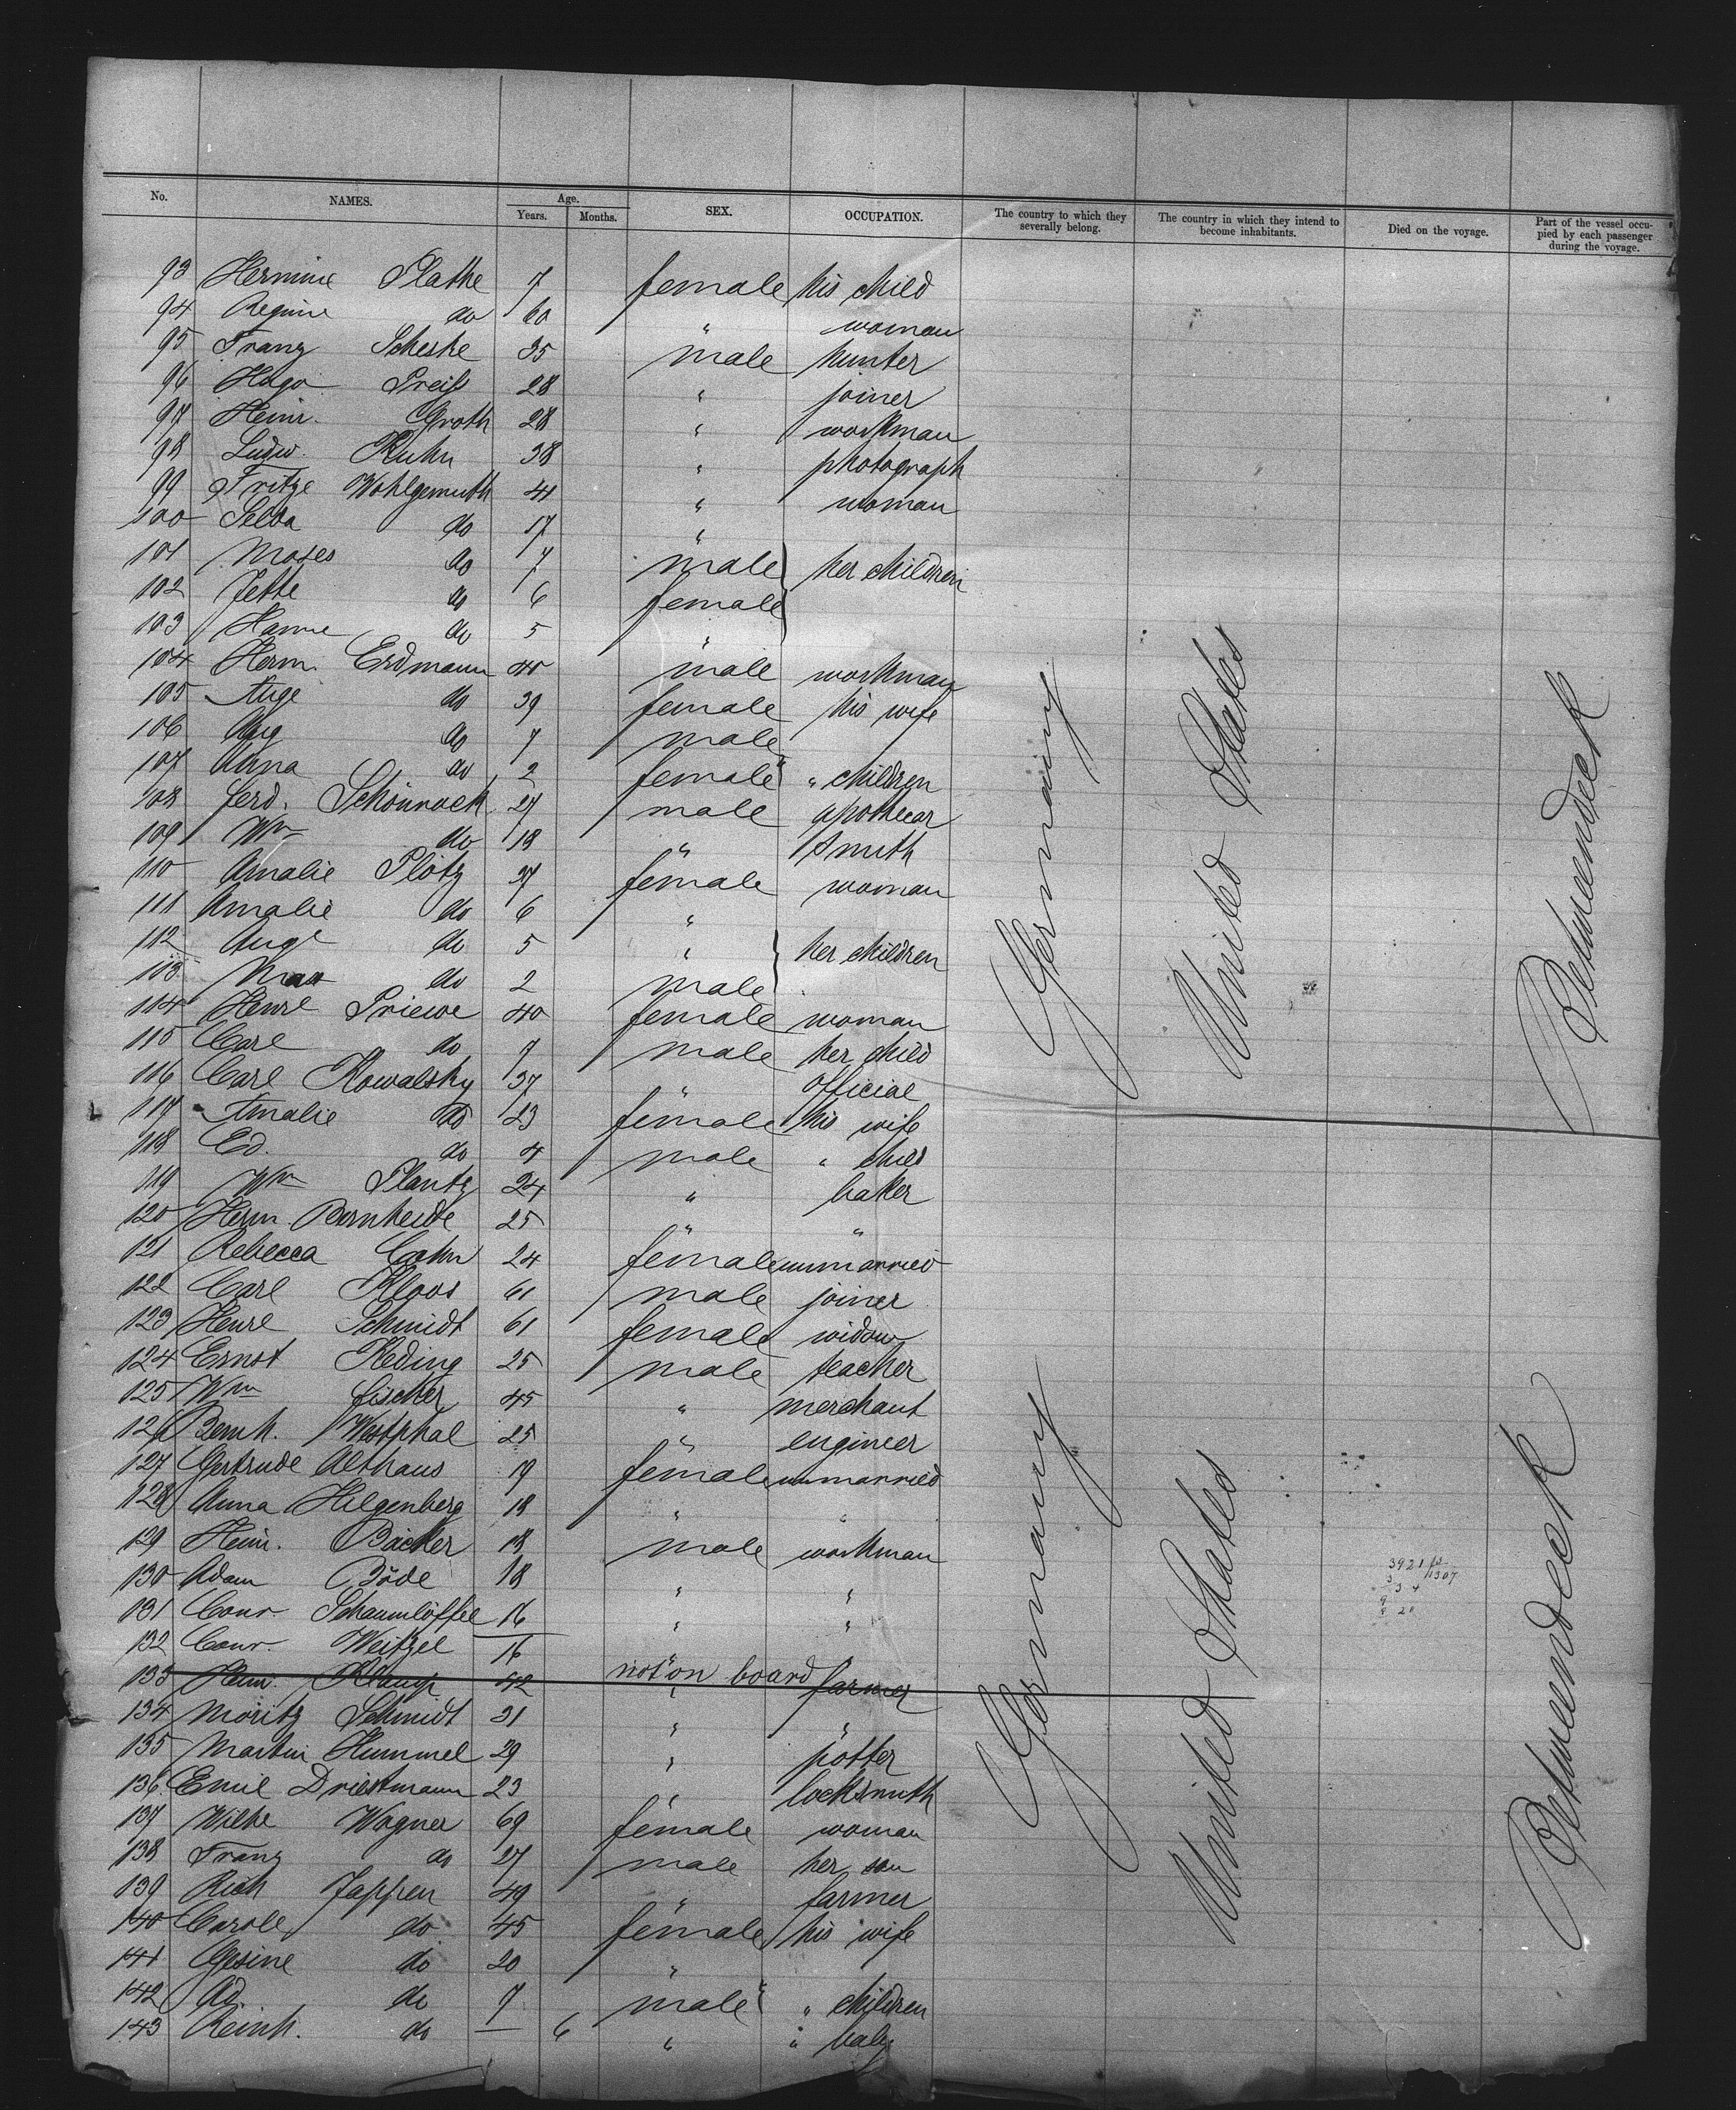 No. NAMES. Age. Years. Months. SEX. OCCUPATION. The country to which they severally belong. The country in which they intend to become inhabitants. Died on the voyage. Part of the vessel occupied by each passenger during the voyage.
93 Hermine Plathe 7 female his child
94 Regine do 60 " woman
95 Franz Scheske 35 male hunter
96 Hugo Preiß 28 " joiner
97 Heinr. Groth 28 " workman
98 Ludw. Kuhn 38 " photograph
99 Fritze Wohlgemuth 41 " woman
100 Selda do 17 "
101 Moses do 7 male her children
102 Jette do 6 female
103 Hanne do 5 "
104 Herm. Erdmann 40 male workman
105 Auge do 39 female his wife
106 Aug do 7 male
107 Anna do 2 female " children
108 Ferd. Schönrock 27 male apothecar
109 Wm do 18 " smith
110 Amalie Plötz 27 female woman
111 Amalie do 6 "
112 Auge do 5 " her children
113 Max do 2 male
114 Henre Priewe 40 female woman
115 Carl do 7 male her child
116 Carl Kowalsky 37 " official
117 Amalie do 23 female his wife
118 Ed. do 4 male " child
119 Wm Plantz 24 " baker
120 Herm. Bornheide 25 " "
121 Rebecca Cohn 24 female unmarried
122 Carl Kloos 61 male joiner
123 Henre Schmidt 61 female widow
124 Ernst Keding 25 male teacher
125 Wm Fischer 45 " merchant
126 Bernh. Westphal 25 " engineer
127 Gertrude Althaus 19 female unmarried
128 Anna Hilgenberg 18 " "
129 Heinr. Bäcker 18 male workman
130 Adam Böde 18 " "
131 Conr. Schaumlöffel 16 " "
132 Conr. Weitzel 16 "
133 Heinr. 42 not on board " farmer
134 Moritz Schmidt 31 " "
135 Martin Hummel 29 " potter
136 Emil Driestmann 23 " locksmith
137 Wilhe Wagner 69 female woman
138 Franz do 27 male her son
139 Rich Jappen 49 " farmer
140 Carole do 45 female his wife
141 Gesine do 20 "
142 Ad. do 7 male " children
143 Reinh. do — 6 " " baby
Germany
United States
Betweendeck
Germany
United States
Betweendeck
3921
1307